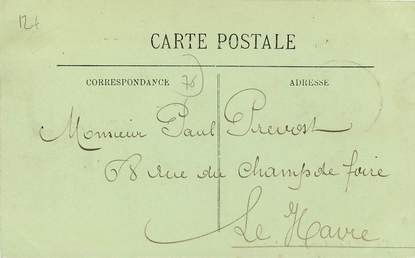 12+
CARTE POSTALE
CORRESPONDANCE 76 ADRESSE
Monsieur Paul Prevost
68 rue du Champ de foire
Le Havre